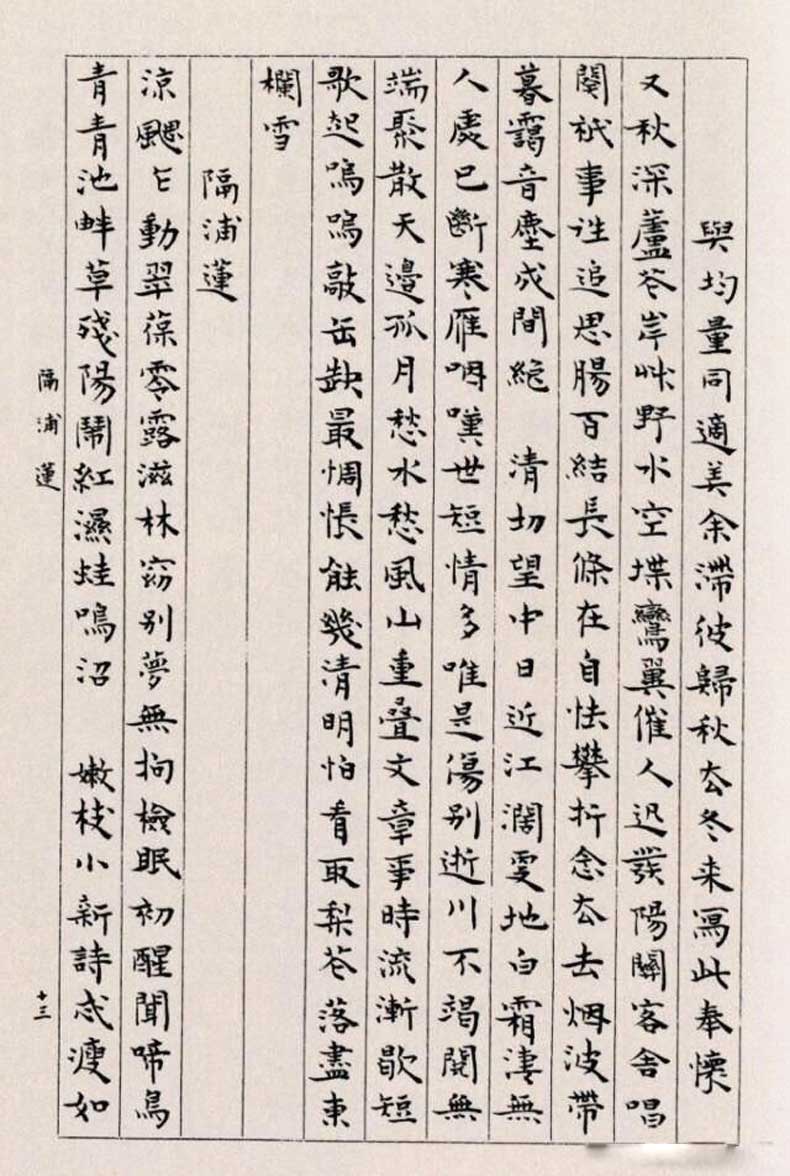 與均量同適美余滯彼歸秋厺冬來寫此奉懷
又秋深蘆芲岸艸野水空堞鸞翼催人迅發陽關客舍唱
闋祇事往追思腸百結長條在自怯攀折念厺去烟波帶
暮靄音塵成間絕　清切望中日近江濶地白霜淒無
人處已斷寒雁咽嘆世短情多唯是傷別逝川不竭閱無
端聚散天邊孤月愁水愁風山重疊文章事時流漸歇短
歌起嗚嗚敲缶缺最惆悵能幾清明怕看取梨芲落盡東
欄雪
隔浦蓮
涼颸乍動翠葆零露滋林窈別夢無拘檢眠初醒聞啼鳥
青青池畔草殘陽鬧紅濕蛙鳴沼　嫩枝小新詩忒瘦如
隔浦蓮
十三